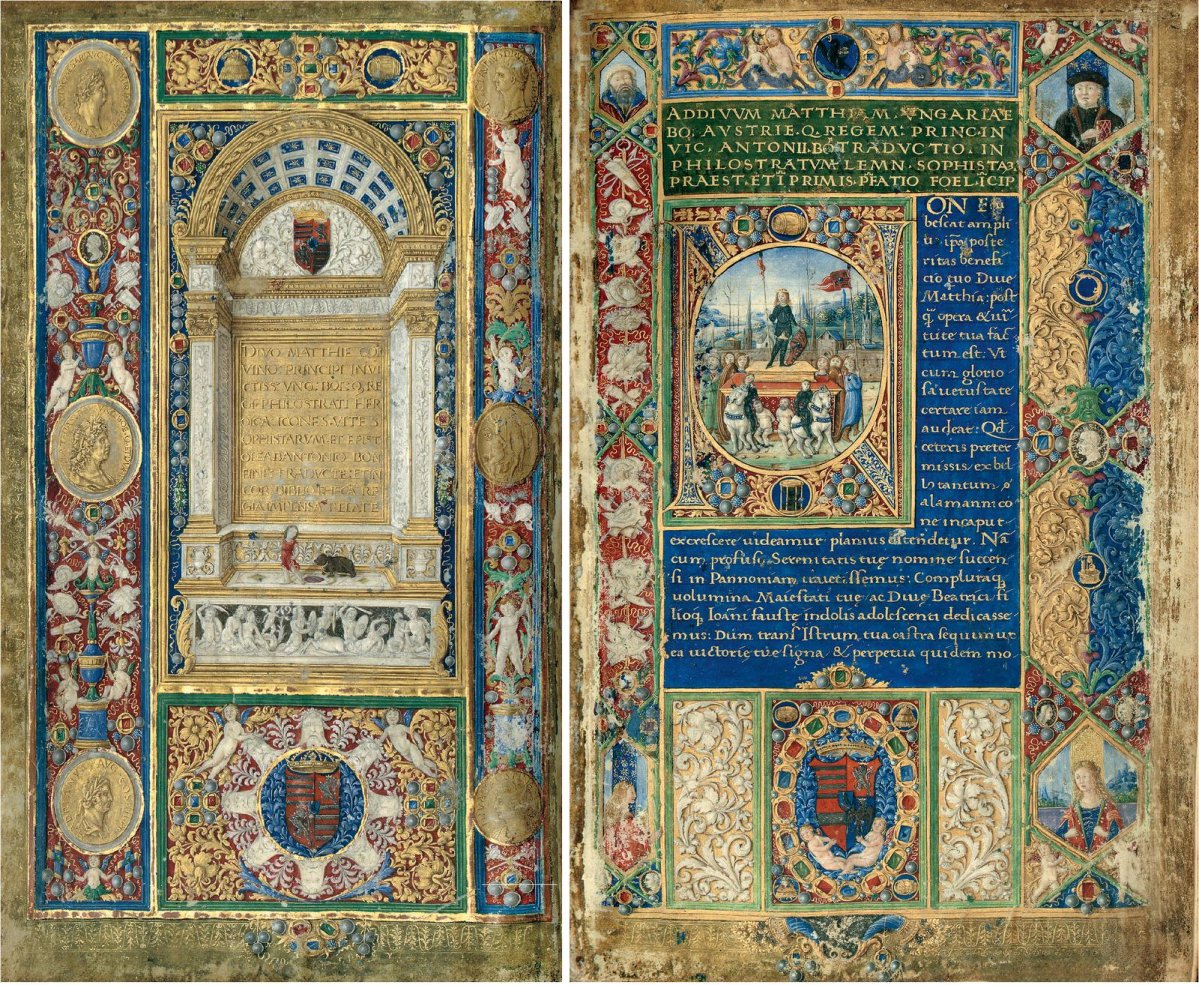 DIVO MATTHIE COR
VINO PRINCIPI INVI
CTISS VNG BO Q RE
GI PHILOSTRATI HER
OICA ICONES VITE S
OPHISTARVM ET EPIST
BON
ADDIVVM MATTHIAM VNGARIAE
BO. AVSTRIE.Q. REGEM: PRINC.IN
VIC. ANTONII.BŌ TRADVCTIO. IN
PHILOSTRATVM LEMN. SOPHISTA
PRAEST. ET Ī PRIMIS P̄FATIO FOELICIP
ON E
bescat ampli
ipa poste
ritas benefi
cio tuo Diue
Matthia: post
q̄ opera & uir
tute tua fac
tum est: Vt
cum glorio
sa uetustate
certare iam
audeat: Qd̄
ceteris preter
missis ex bel
lo tantum
alamannico
ne in caput
excrescere uideamur planius ostendetur. Nā
cum profusis Serenitatis tue nomine succen
si in Pannoniam traiecissemus: Compluraq
uolumina Maiestati tue ac Diue Beatrici fi
lioq Ioāni fauste indolis adolescenti dedicasse
mus: Dum trans Istrum tua castra sequimur
ea uictorie tue signa & perpetua quidem mo